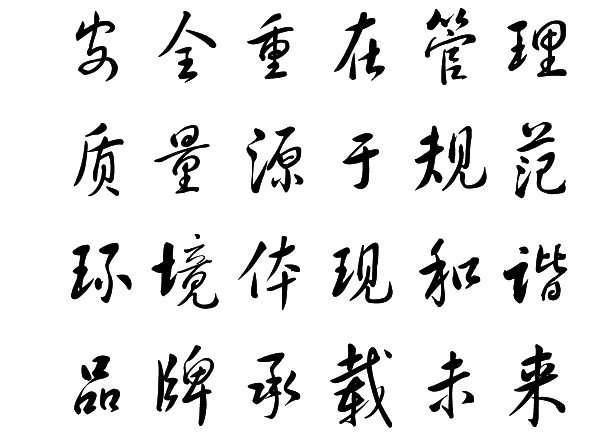 安全重在管理
质量源于规范
环境体现和谐
品牌承载未来